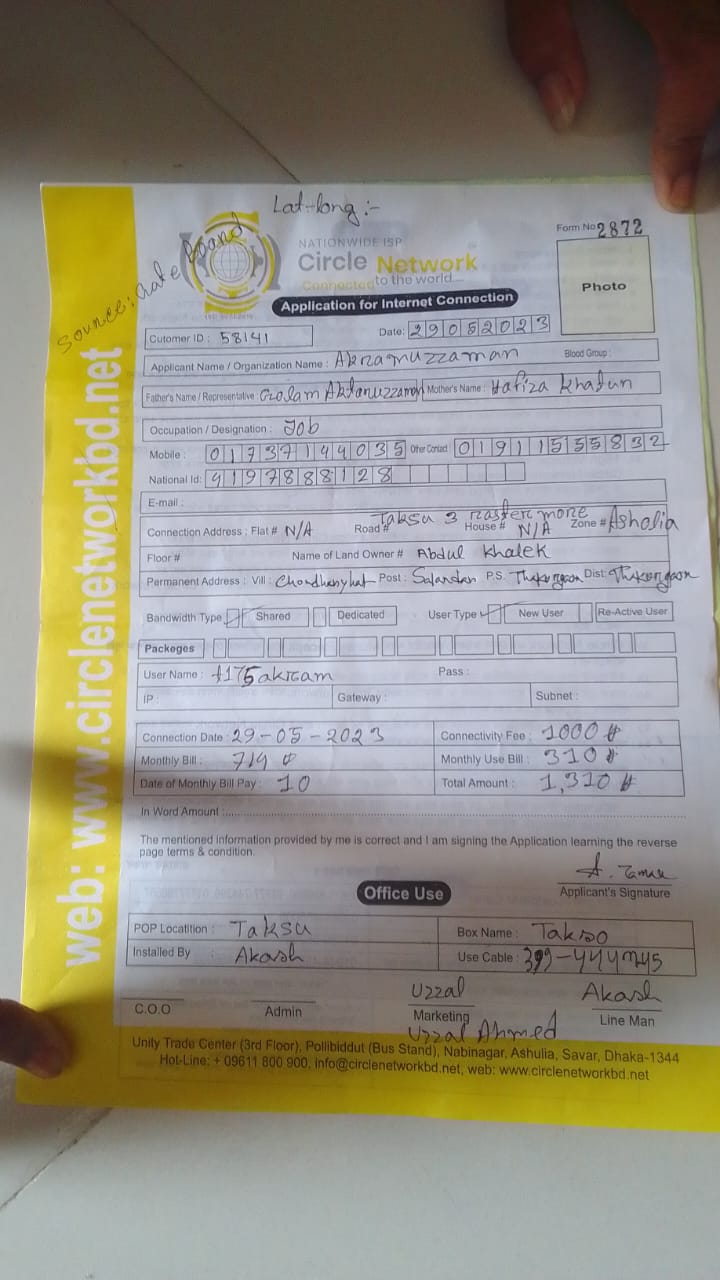 Lat-long :-
Form No 2872
Source: Gate board
NATIONWIDE ISP
Circle Network
Connected to the world....
Photo
Application for Internet Connection
Cutomer ID : 58141 Date: 29052023
Applicant Name / Organization Name : Akramuzzaman Blood Group :
Father's Name / Representative : Golam Aktaruzzaman Mother's Name : Hafiza Khatun
Occupation / Designation : Job
Mobile : 01737144035 Other Contact 01911555832
National Id: 4197888128
E-mail :
Taksu 3 raster more
Connection Address : Flat # N/A Road # House # N/A Zone # Asholia
Floor # Name of Land Owner # Abdul Khalek
Permanent Address : Vill : Post : Salandar P.S. Thakurgaon Dist: Thakurgaon
Bandwidth Type Shared Dedicated User Type New User Re-Active User
Packeges
User Name : Pass :
IP : Gateway : Subnet :
Connection Date : 29-05-2023 Connectivity Fee : 1000
Monthly Bill : 714 Monthly Use Bill : 310
Date of Monthly Bill Pay : 10 Total Amount : 1,310
In Word Amount :
The mentioned information provided by me is correct and I am signing the Application learning the reverse
page terms & condition.
A. Zaman
Office Use
Applicant's Signature
POP Locatition : Taksu Box Name : Takso
Installed By Akash Use Cable :
Uzzal Akash
C.O.O Admin Marketing Line Man
Uzzal Ahmed
Unity Trade Center (3rd Floor), Pollibiddut (Bus Stand), Nabinagar, Ashulia, Savar, Dhaka-1344
Hot-Line: + 09611 800 900, info@circlenetworkbd.net, web: www.circlenetworkbd.net
web: www.circlenetworkbd.net